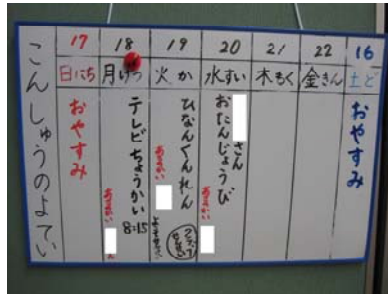 こんしゅうのよてい
17
18
19
20
21
22
16
日にち
月げつ
火か
水すい
木もく
金きん
土ど
おやすみ
テレビちょうかい
8:15
ひなんくんれん
さん
おたんじょうび
おやすみ